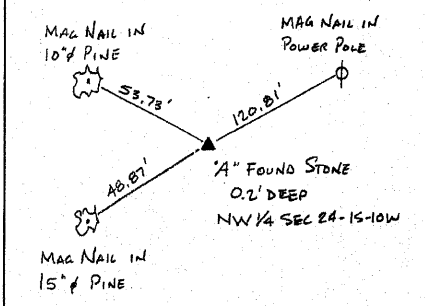 MAG NAIL IN
10"⌀ PINE
MAG NAIL IN
POWER POLE
53.73'
120.81'
48.87'
"A" FOUND STONE
0.2' DEEP
NW 1/4 SEC 24-15-10W
MAG NAIL IN
15"⌀ PINE